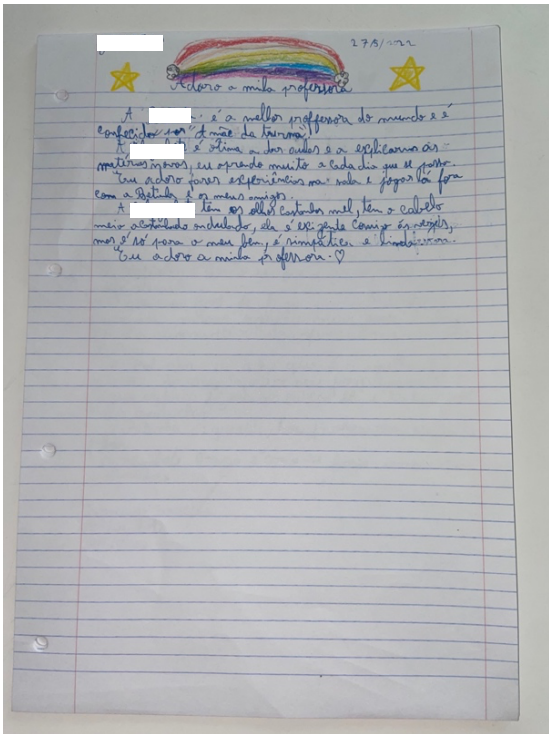 27/5/2022
Adoro a minha professora
A é a melhor proffesora do mundo e é
conhecida por "A mãe da turma".
A é ótima a dar aulas e a explicarnos as
matérias novas, eu aprendo muito a cada dia que se passa.
Eu adoro fazer experiências na sala e jogar lá fora
com a e os meus amigos.
A têm os olhos castanhos mel, têm o cabelo
meio acastanhado ondulado, ela é exigente comigo ás vezes,
mas é só para o meu bem, é simpática e
Eu adoro a minha professora. ♡